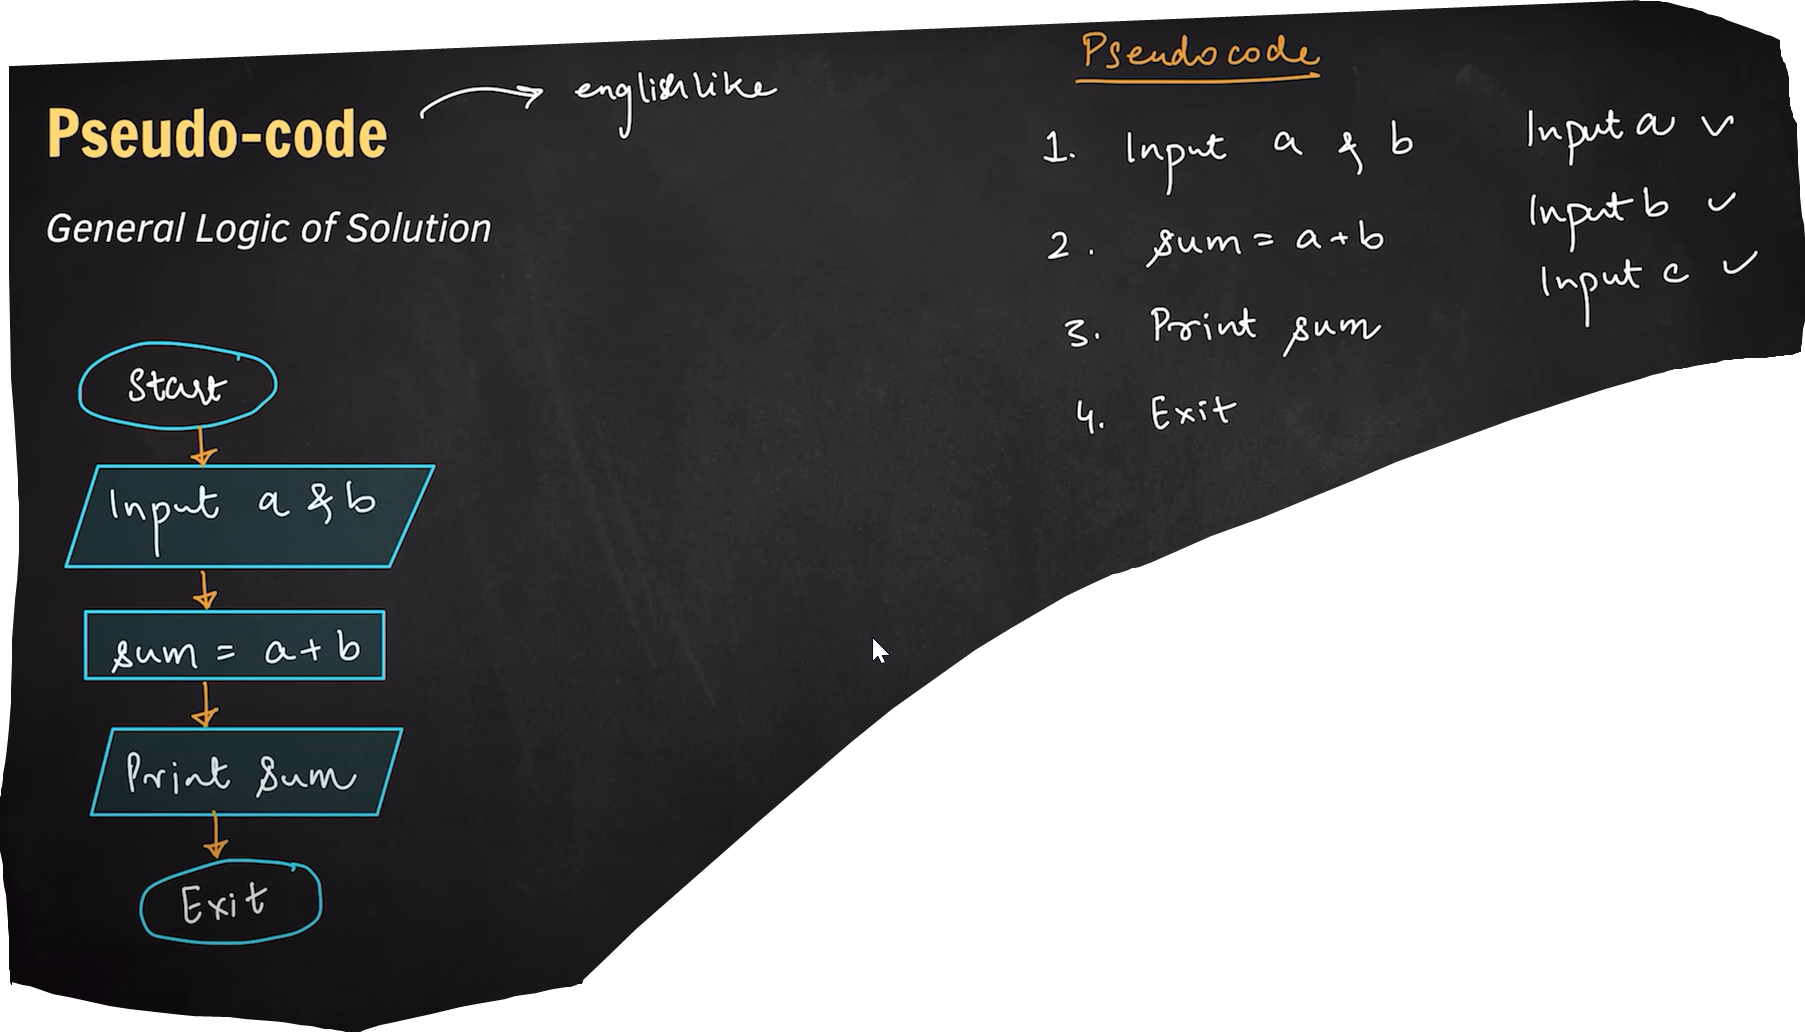 Pseudo-code
englishlike
General Logic of Solution
Start
Input a & b
sum = a + b
Print sum
Exit
Pseudocode
1. Input a & b
2. sum = a + b
3. Print sum
4. Exit
Input a ✓
Input b ✓
Input c ✓